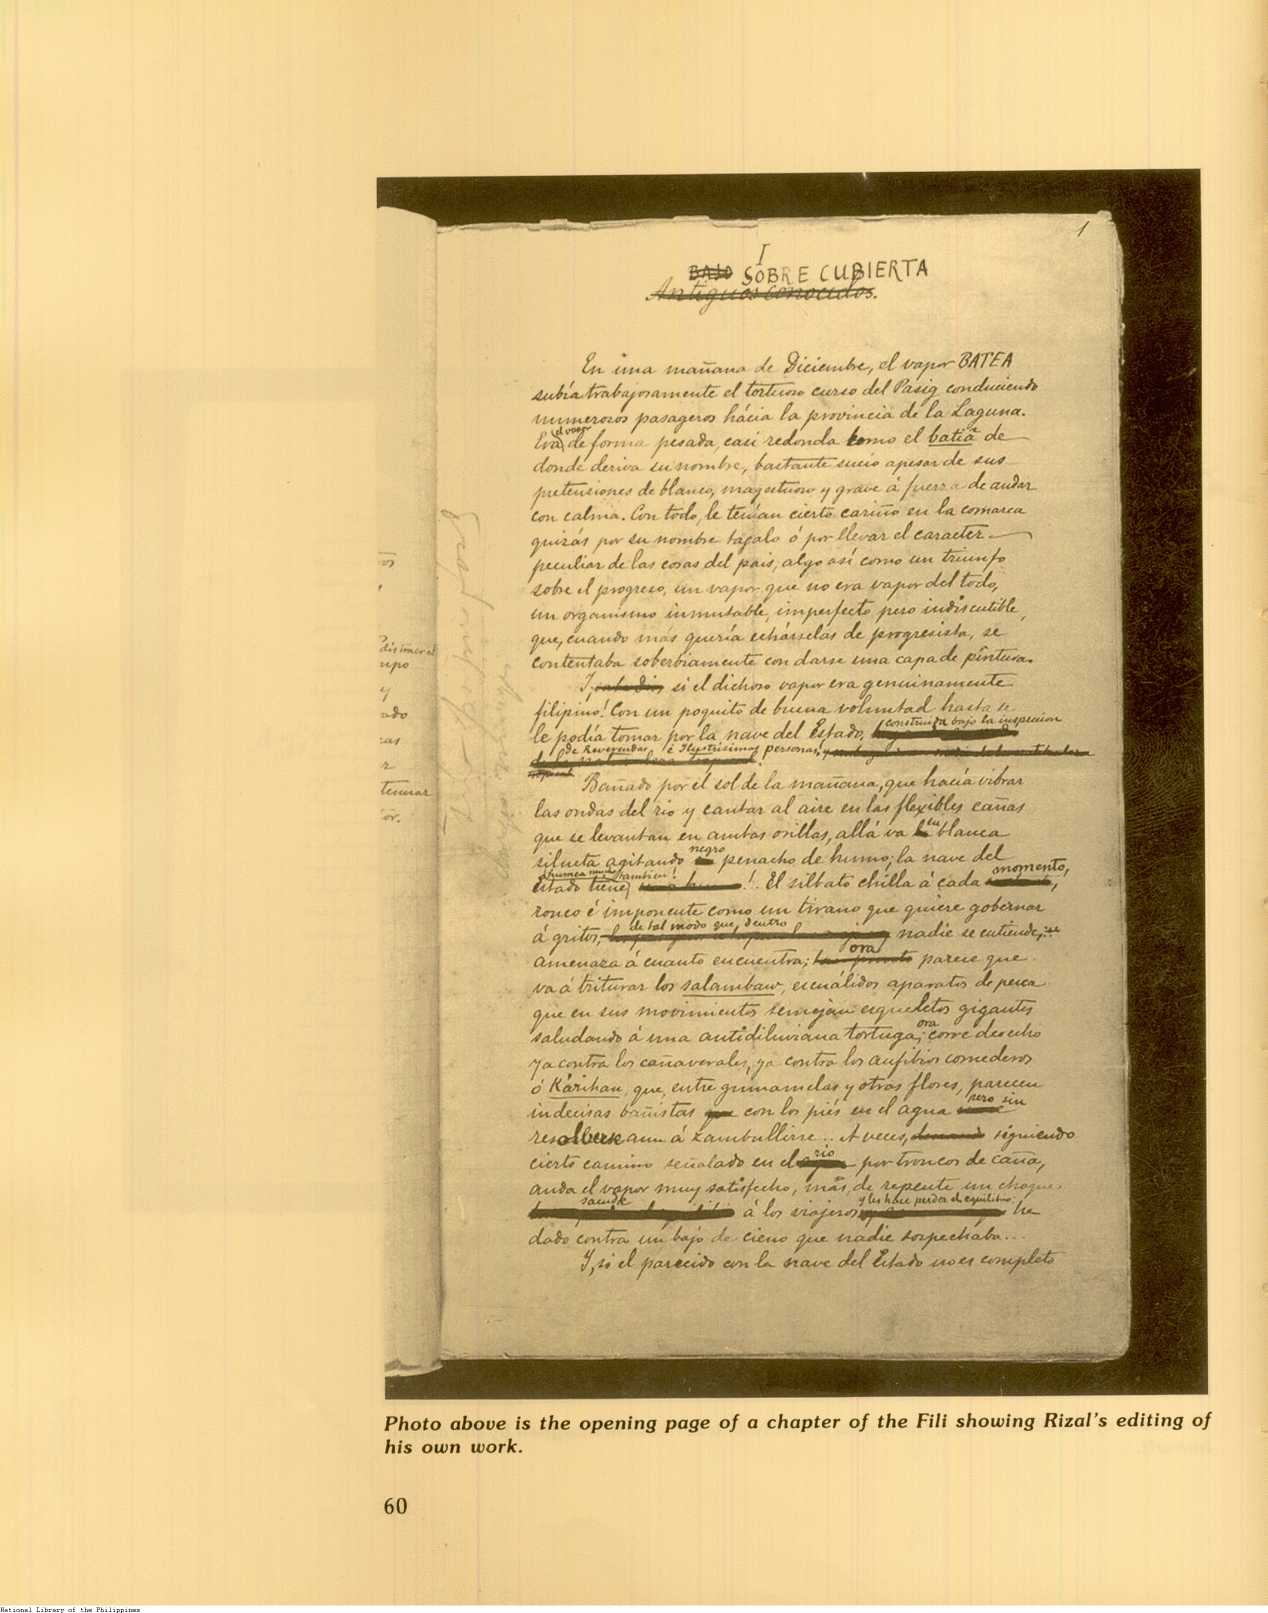 1
I
BAJO SOBRE CUBIERTA
Antiguos conocidos.
En una mañana de Diciembre, el vapor BATEA
subía trabajosamente el tortuoso curso del Pasig conduciendo
numerosos pasageros hácia la provincia de la Laguna.
Era el vapor de forma pesada, casi redonda como el batiâ de
donde deriva su nombre, bastante sucio apesar de sus
pretensiones de blanco, magestuoso y grave á fuerza de andar
con calma. Con todo, le tenían cierto cariño en la comarca
quizas por su nombre tágalo ó por llevar el caracter
peculiar de las cosas del pais, algo así como un triunfo
sobre el progreso, un vapor que no era vapor del todo,
un organismo inmutable, imperfecto pero indiscutible,
que, cuando más quería echárselas de progresista, se
contentaba soberbiamente con darse una capa de pintura.
Y, si el dichoso vapor era genuinamente
filipino! Con un poquito de buena voluntad hasta se
le podía tomar por la nave del Estado, construida bajo la inspeccion
de Reverendas é Ilustrísimas personas!
Bañado por el sol de la mañana, que hacía vibrar
las ondas del rio y cantar al aire en las flexibles cañas
que se levantan en ambas orillas, allá va su blanca
silueta agitando negro penacho de humo; la nave del
Estado tiene humea mucho tambien! El silbato chilla á cada momento,
ronco é imponente como un tirano que quiere gobernar
á gritos, de tal modo que, dentro nadie se entiende,
amenaza á cuanto encuentra; ora parece que
va á triturar los salambaw, escuálidos aparatos de pesca
que en sus movimientos semejan esqueletos gigantes
saludando á una antidiluviana tortuga; ora corre derecho
ya contra los cañaverales, ya contra los anfibios comederos
ó Kárihan, que, entre gumamelas y otras flores, parecen
indecisas bañistas que con los piés en el agua pero sin
resolverse aun á zambullirse.. A veces, siguiendo
cierto camino señalado en el rio por troncos de caña,
anda el vapor muy satisfecho, mas, de repente un choque
sacude á los viajeros y les hace perder el equilibrio: ha
dado contra un bajo de cieno que nadie sospechaba...
Y, si el parecido con la nave del Estado no es completo
distraer el
y
ado
tenerar
Photo above is the opening page of a chapter of the Fili showing Rizal's editing of
his own work.
60
National Library of the Philippines